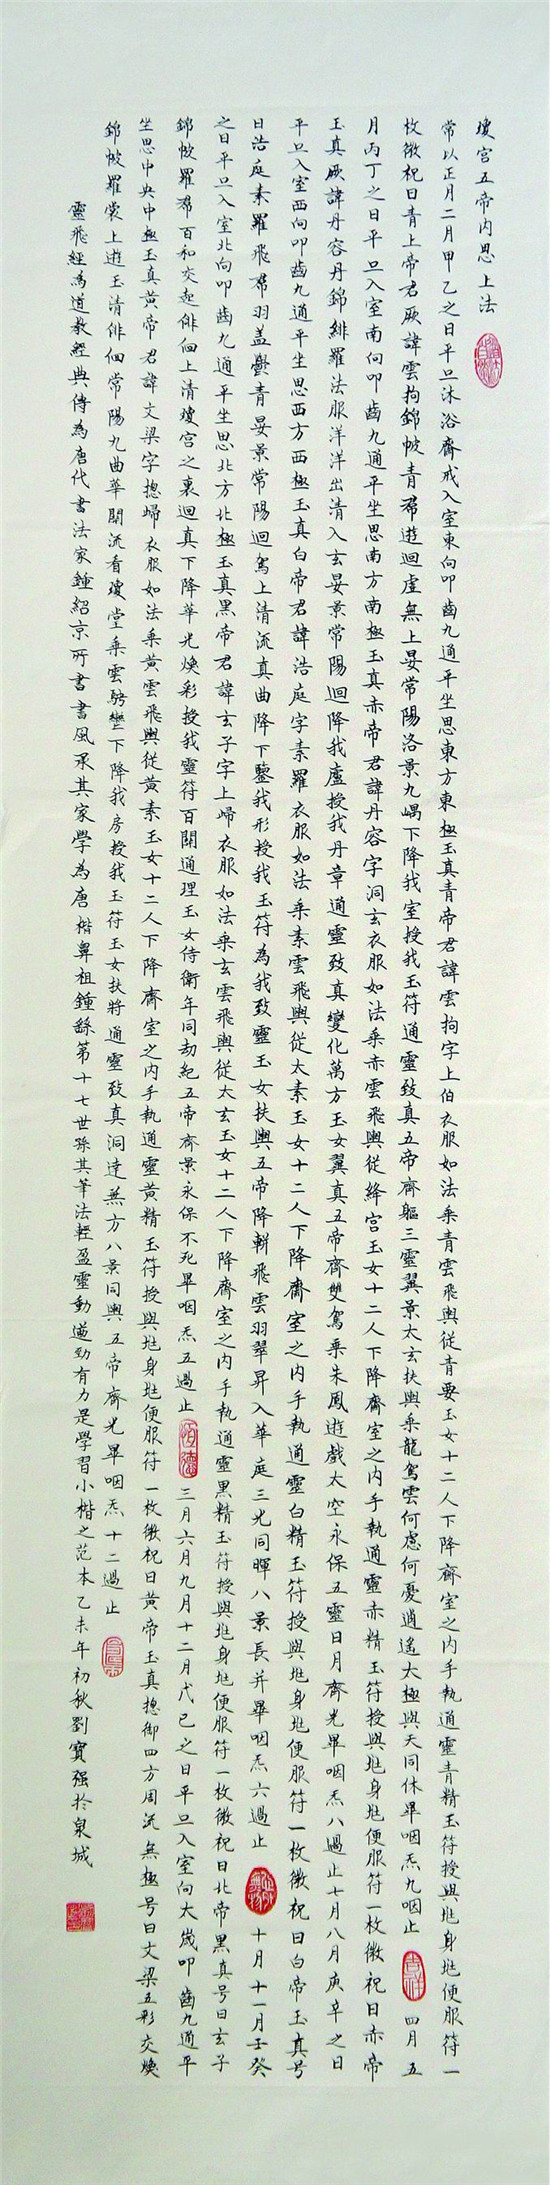 瓊宮五帝內思上法
常以正月二月甲乙之日平旦沐浴齋戒入室東向叩齒九通平坐思東方東極玉真青帝君諱雲拘字上伯衣服如法乘青雲飛輿從青要玉女十二人下降齋室之內手執通靈青精玉符授與兆身兆便服符一
枚微祝曰青上帝君厥諱雲拘錦帔青帬遊迴虛無上晏常陽洛景九嵎下降我室授我玉符通靈致真五帝齊軀三靈翼景太玄扶輿乘龍駕雲何慮何憂逍遙太極與天同休畢咽炁九咽止 吉祥 四月五
月丙丁之日平旦入室南向叩齒九通平坐思南方南極玉真赤帝君諱丹容字洞玄衣服如法乘赤雲飛輿從絳宮玉女十二人下降齋室之內手執通靈赤精玉符授與兆身兆便服符一枚微祝曰赤帝
玉真厥諱丹容丹錦緋羅法服洋洋出清入玄晏景常陽迴降我廬授我丹章通靈致真變化萬方玉女翼真五帝齊雙駕乘朱鳳遊戲太空永保五靈日月齊光畢咽炁八過止七月八月庚辛之日
平旦入室西向叩齒九通平坐思西方西極玉真白帝君諱浩庭字素羅衣服如法乘素雲飛輿從太素玉女十二人下降齋室之內手執通靈白精玉符授與兆身兆便服符一枚微祝曰白帝玉真号
曰浩庭素羅飛帬羽盖鬱青晏景常陽迴駕上清流真曲降下鑒我形授我玉符為我致靈玉女扶輿五帝降軿飛雲羽翠昇入華庭三光同暉八景長并畢咽炁六過止 十月十一月壬癸
之日平旦入室北向叩齒九通平坐思北方北極玉真黑帝君諱玄子字上歸衣服如法乘玄雲飛輿從太玄玉女十二人下降齋室之內手執通靈黑精玉符授與兆身兆便服符一枚微祝曰北帝黑真号曰玄子
錦帔羅帬百和交起俳佪上清瓊宮之裏迴真下降華光煥彩授我靈符百關通理玉女侍衛年同劫紀五帝齊景永保不死畢咽炁五過止 恒德 三月六月九月十二月戊己之日平旦入室向大歲叩齒九通平
坐思中央中極玉真黃帝君諱文梁字揔歸衣服如法乘黃雲飛輿從黃素玉女十二人下降齋室之內手執通靈黃精玉符授與兆身兆便服符一枚微祝曰黃帝玉真揔御四方周流無極号曰文梁五彩交煥
錦帔羅裳上遊玉清俳佪常陽九曲華關流看瓊堂乘雲騁轡下降我房授我玉符玉女扶將通靈致真洞達無方八景同輿五帝齊光畢咽炁十二過止
靈飛經為道教經典傳為唐代書法家鍾紹京所書書風承其家學為唐楷鼻祖鍾繇第十七世孫其筆法輕盈靈動遒勁有力是學習小楷之范本乙未年初秋劉寶强於泉城